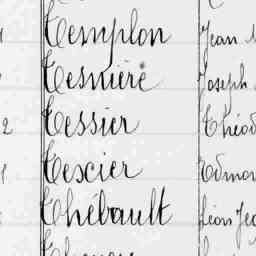 Templon Jean
Tesnière Joseph
2 Tessier Théod
Texier Edmon
Thébault Léon Je